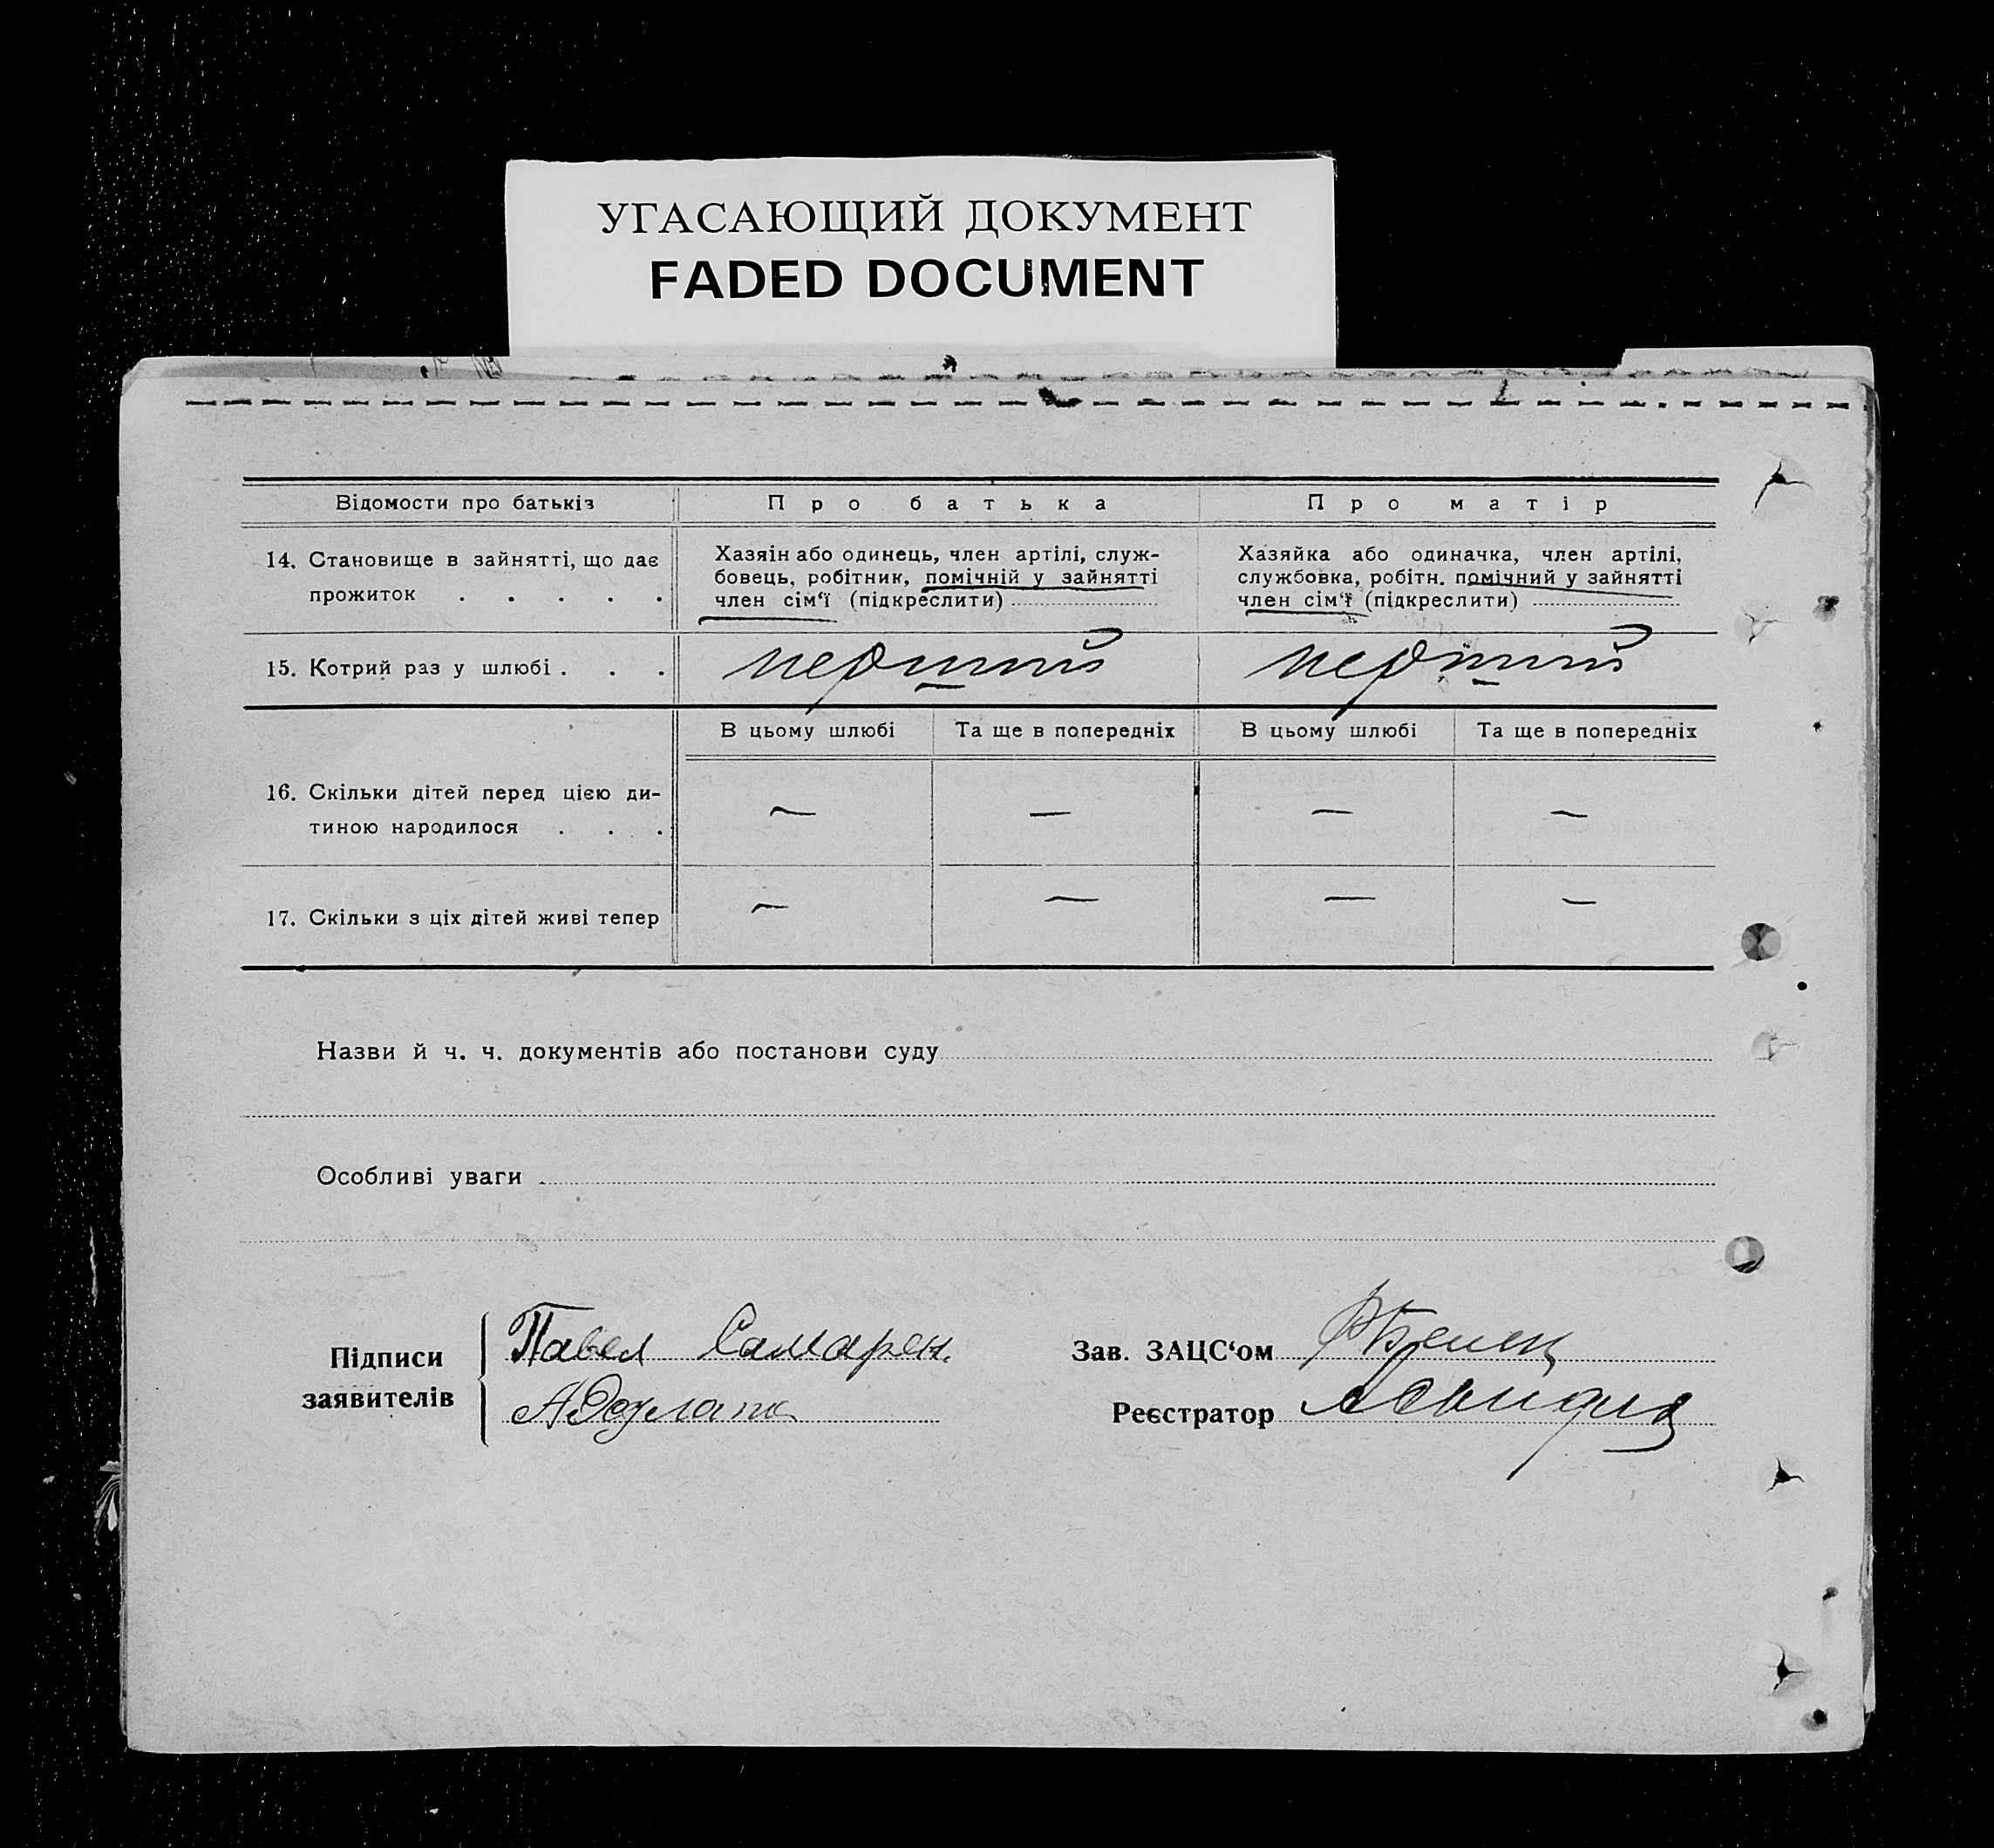 УГАСАЮЩИЙ ДОКУМЕНТ
FADED DOCUMENT
Відомости про батьків
Про батька
Про матір
14. Становище в зайнятті, що дає
прожиток . . . . .
Хазяін або одинець, член артілі, служ-
бовець, робітник, помічній у зайнятті
член сім‘ї (підкреслити)
Хазяйка або одиначка, член артілі,
службовка, робітн. помічний у зайнятті
член сім‘ї (підкреслити)
15. Котрий раз у шлюбі . . .
перший
перший
В цьому шлюбі
Та ще в попередніх
В цьому шлюбі
Та ще в попередніх
16. Скільки дітей перед цією ди-
тиною народилося . . .
— — — —
17. Скільки з ціх дітей живі тепер
— — — —
Назви й ч. ч. документів або постанови суду
Особливі уваги
Підписи
заявителів
Павел Самарен.
Зав. ЗАЦС‘ом
Реєстратор